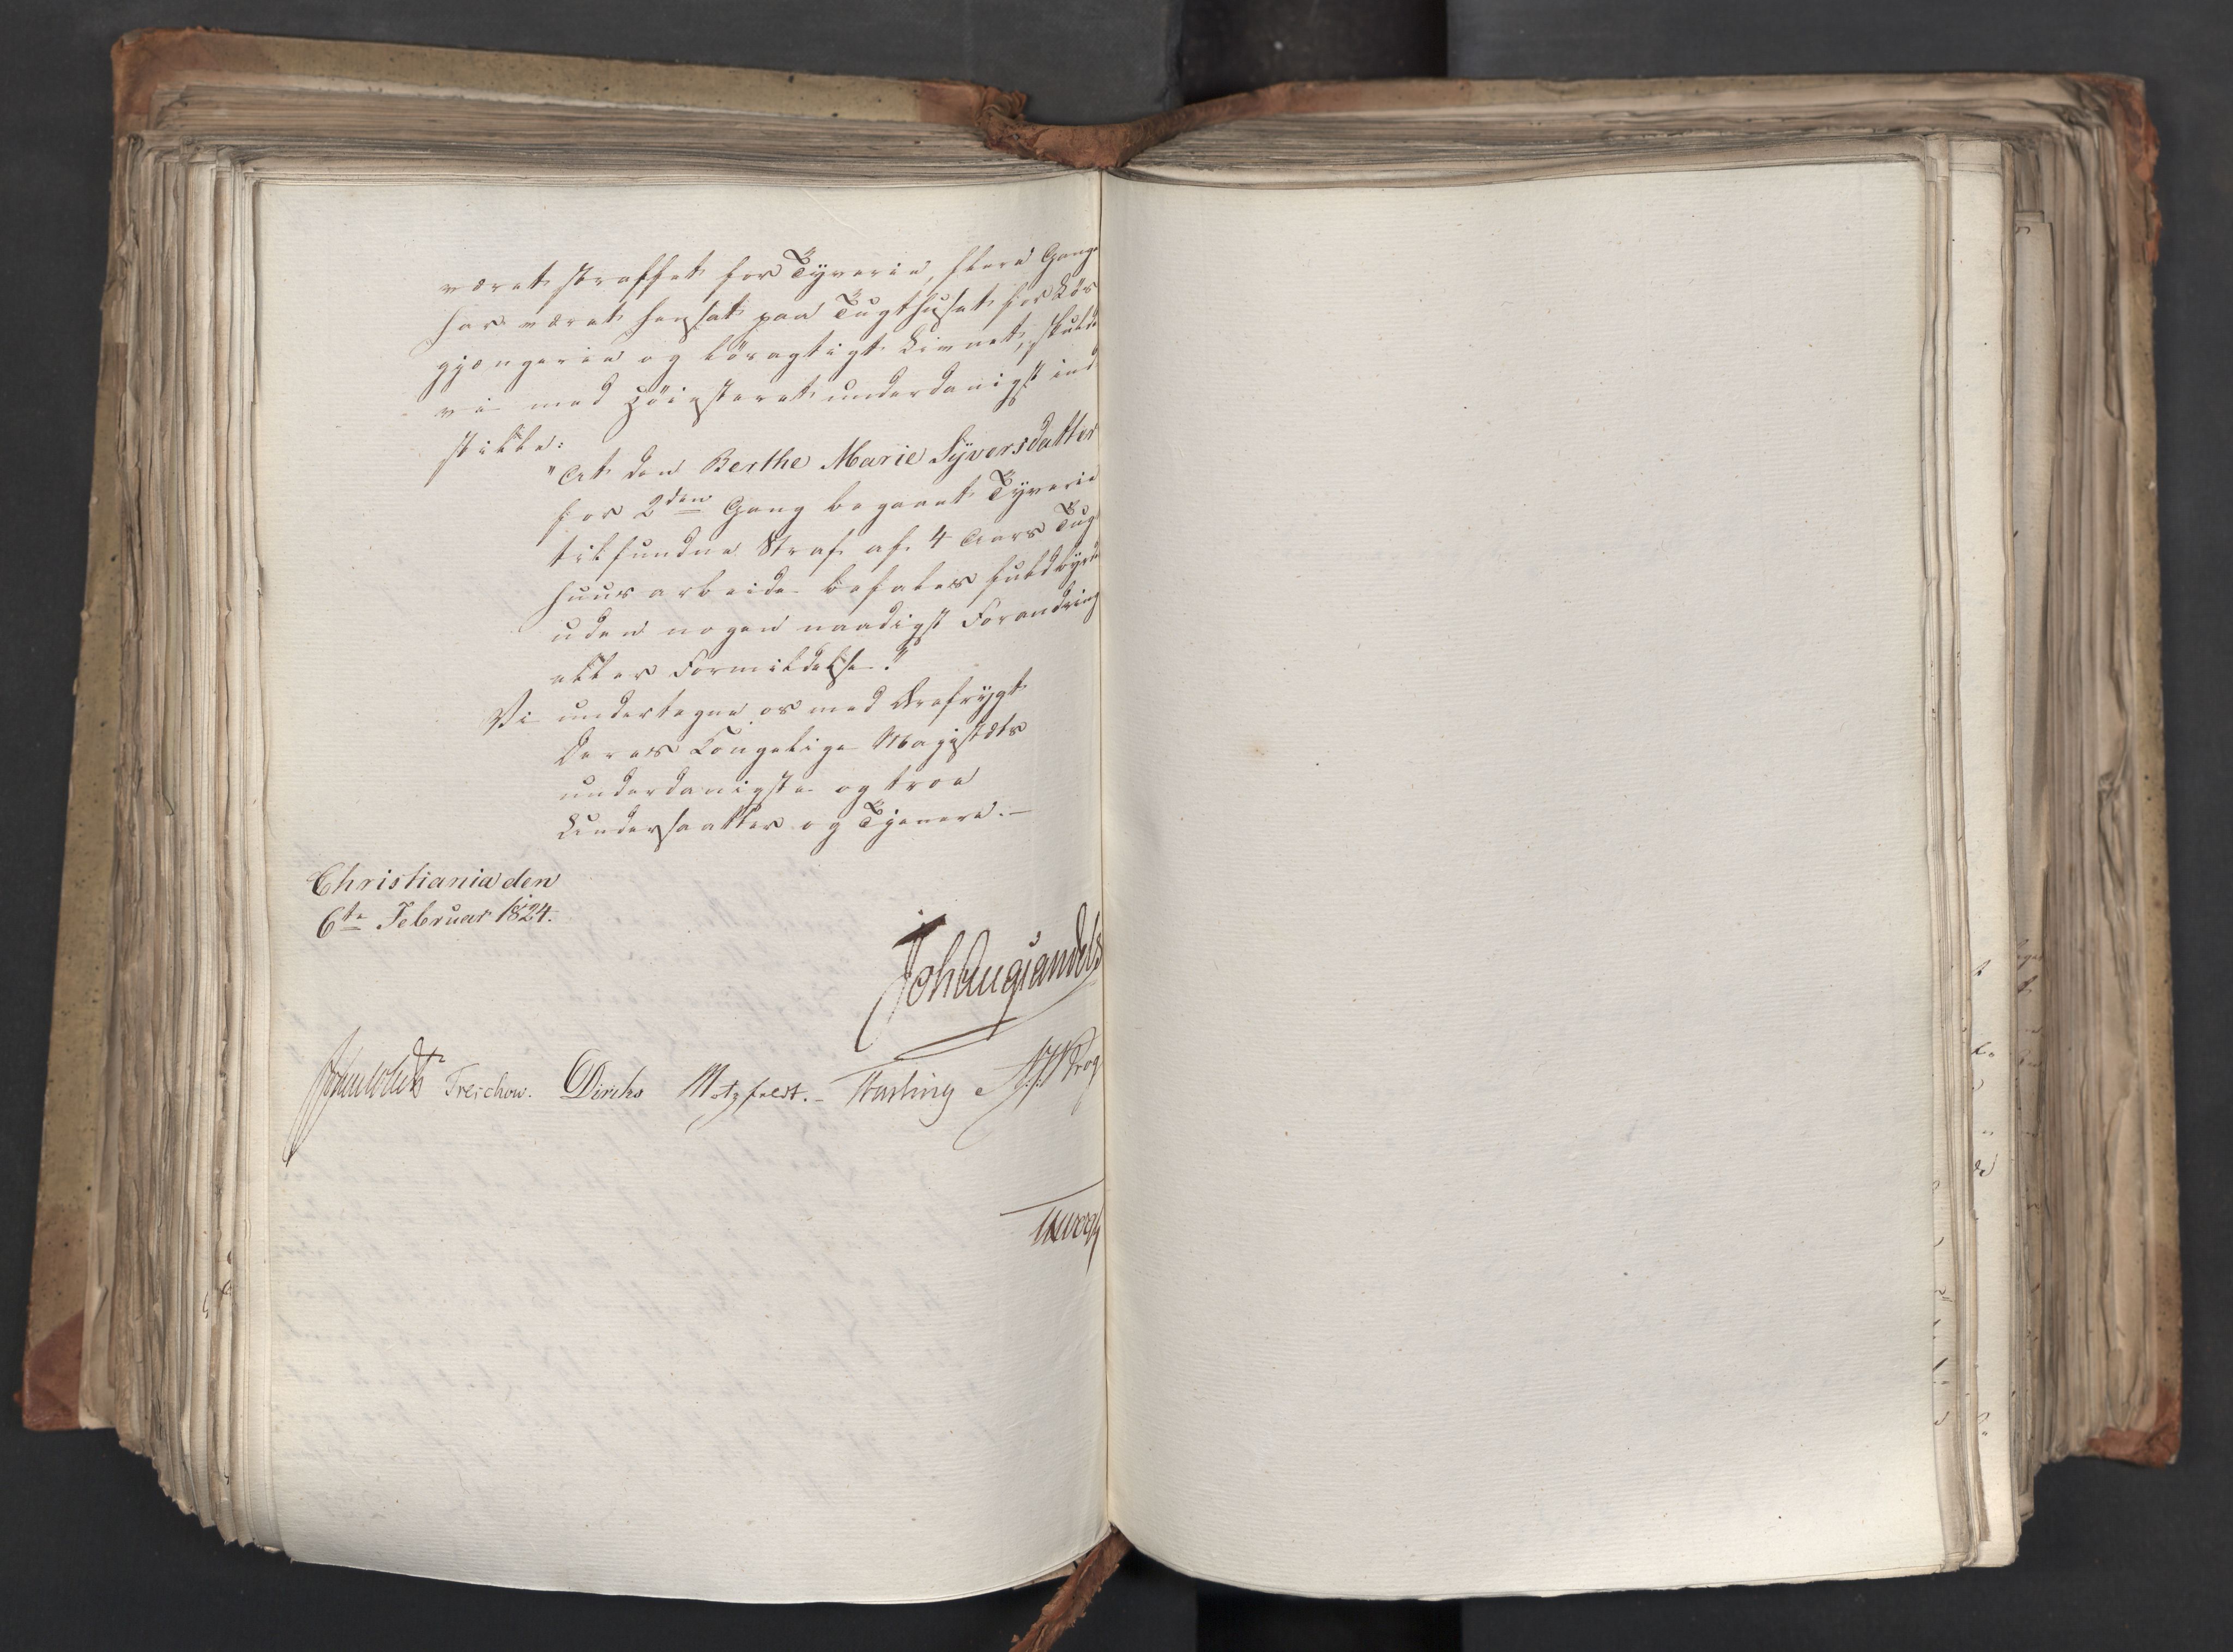 været straffet for Tyverie, flere Gange
har været hensat paa Tugthuset for Løs
gjængerie og løsagtigt Levnet, skulde
vi med Høiesteret underdanigst ind
stille:
"At den Berthe Marie Syversdatter
for 2den Gang begaaet Tyverie
tilfundne Straf af 4 Aars Tug
huusarbeide befales fuldbyrd
uden nogen naadigst Forandring
eller Formildelse."
Vi undertegne os med Ærefrygt
Deres Kongelige Majestæts
underdanigste og troe
Undersaatter og Tjenere.-
Christiania den
6te Februar 1824.
Joh Aug Sandels
Treschow. Diriks Motzfeldt.- Fasting